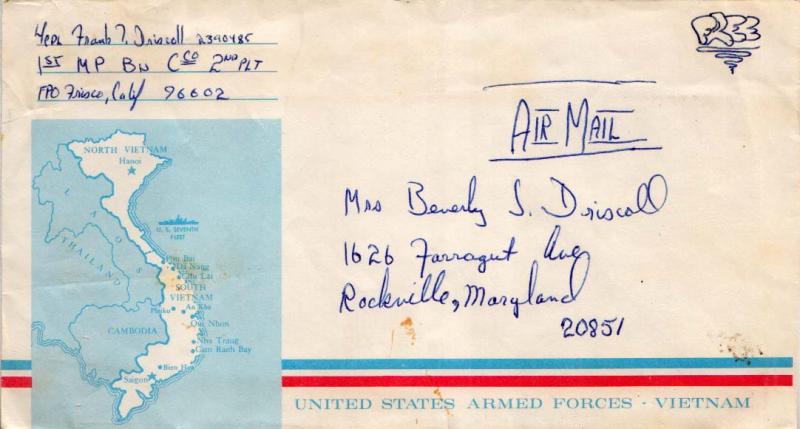 L/CPL Frank T. Driscoll 2390485
1ST MP BN C CO 2ND PLT
FPO Frisco, Calif 96602
FREE
AIR MAIL
Mrs Beverly S. Driscoll
1626 Farragut Ave
Rockville, Maryland
20851
NORTH VIETNAM
Hanoi
LAOS
U. S. SEVENTH
FLEET
THAILAND
Phu Bai
Da Nang
Chu Lai
SOUTH
VIETNAM
Pleiku
An Khe
Qui Nhon
CAMBODIA
Nha Trang
Cam Ranh Bay
Bien Hoa
Saigon
UNITED STATES ARMED FORCES - VIETNAM